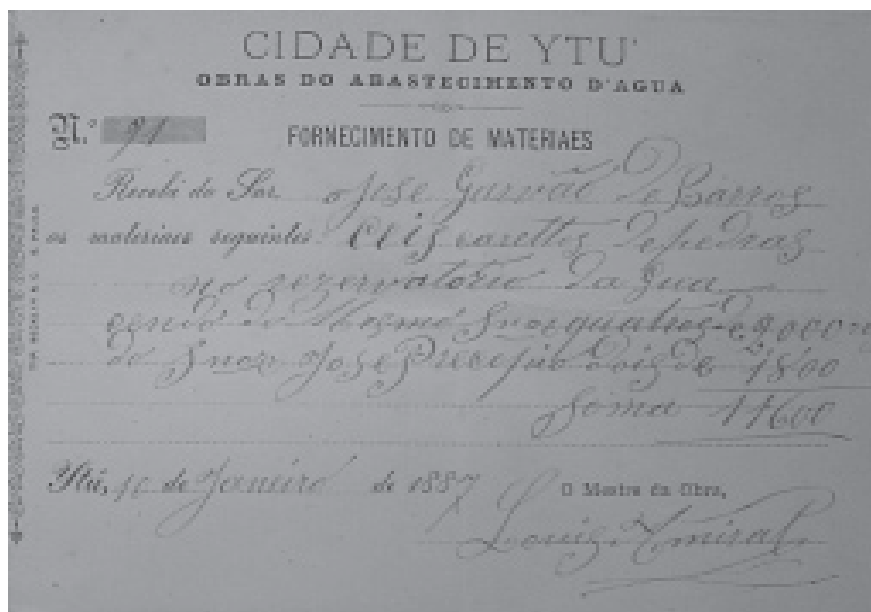 CIDADE DE YTU'
OBRAS DO ABASTECIMENTO D'AGUA
N.º 91
FORNECIMENTO DE MATERIAES
Recebi do Snr. Jose Garvão de Barros
os materiaes seguintes: Ceis carettos de pedras
no rezervatorio da Gua
cendo do Mesmo Snor quatros de
do Snor Jose dois de 1800
Soma 11600
Ytú, 10 de Janeiro de 1887
O Mestre da Obra,
Louis